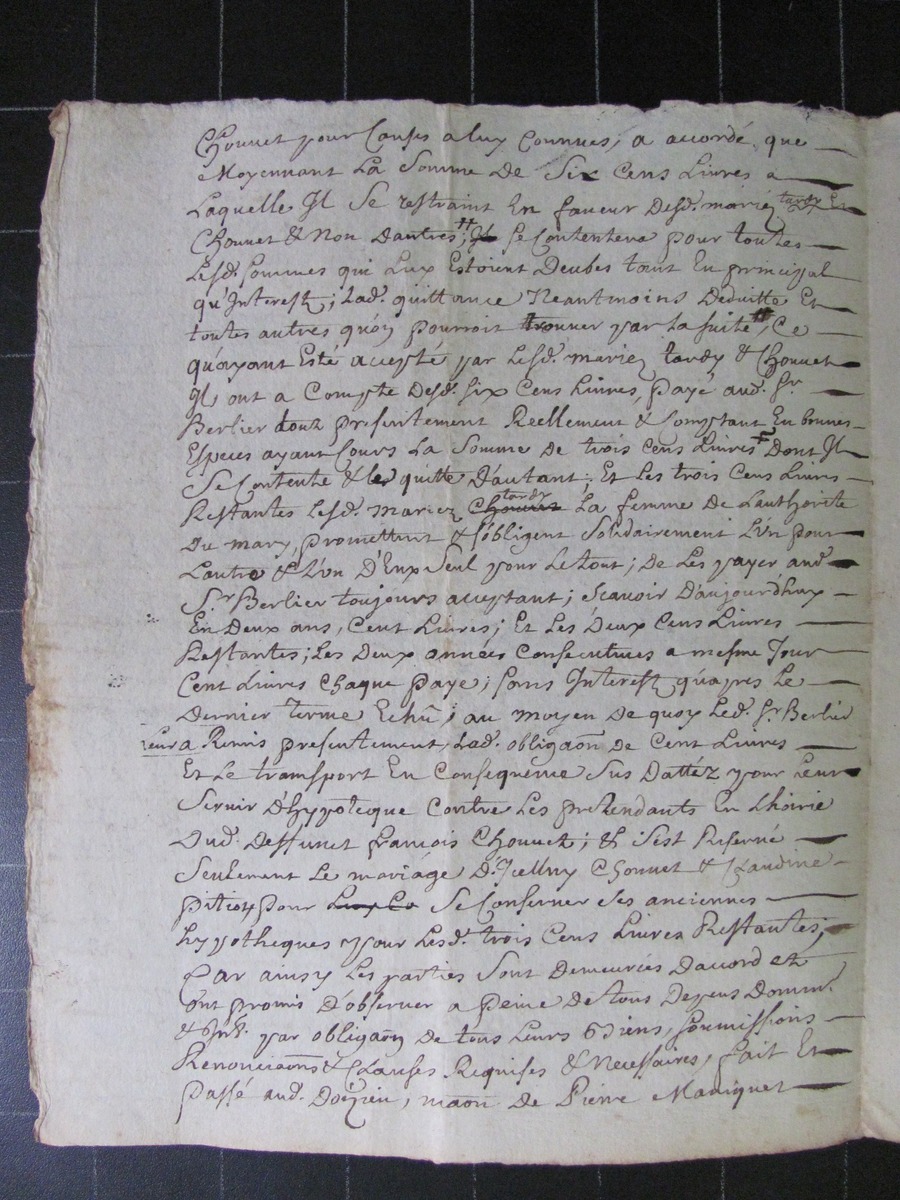 Chouvet pour Causes a luy Connues, a accordé, que
Moyennant La Somme De Six Cens Livres a
Laquelle Il Se restraint En faveur Desd. mariez tardy Et
Chouvet & Non Dautres, Se Contentera pour toutes
Lesd. Sommes qui Luy Estoient Deubes tant En principal
qu'Interest; Lad. quittance Neantmoins Deduitte Et
toutes autres qu'on pourroit trouver par La suite, Ce
qu'ayant Esté accepté par Lesd. mariez tardy & Chouvet
Ils ont a Compte Desd. six Cens Livres, payé aud. Sr.
Berlier tout presentement Reellement & Comptant En bonnes
Especes ayant Cours La Somme De trois Cens Livres Dont Il
Se Contente & les quitte D'autant; Et Les trois Cens Livres
Restantes Lesd. Mariez Chouvet tardy La femme De Lauthorite
Du mary, promettent & s'obligent Solidairement L'un pour
Lautre & L'un D'Eux Seul pour Le tout; De Les payer aud.
Sr. Berlier toujours acceptant; Scavoir D'aujourd'huy
En Deux ans, Cent Livres; Et Les Deux Cens Livres
Restantes; Les Deux années Consecutives a mesme Jour
Cent Livres Chaque paye; sans Interest qu'apres Le
Dernier terme Echû; au moyen De quoy Led. Sr. Berlier
leur a Remis presentement Lad. obligaõn de Cent Livres
Et Le transport En Consequence Sus Dattéz pour Leur
Servir D'hypoteque Contre Les pretendants En Lhoirie
Dud. Deffunct françois Chouvet; & S'est Reservé
Seulement Le mariage D' Chouvet & Claudine
pitiot pour Luy Se Conserver Ses anciennes
hypotheques pour Lesd. trois Cens Livres Restantes;
Par ainsy Les parties Sont Demeurées Dacord et
ont promis D'observer a peine De tous Depens Domm.
& Int. par obligaõn De tous Leurs Biens, soumissions
Renonciaõns & Clauses Requises & Necessaires, fait Et
passé aud. Doizieu, maõn De Pierre Maniquet